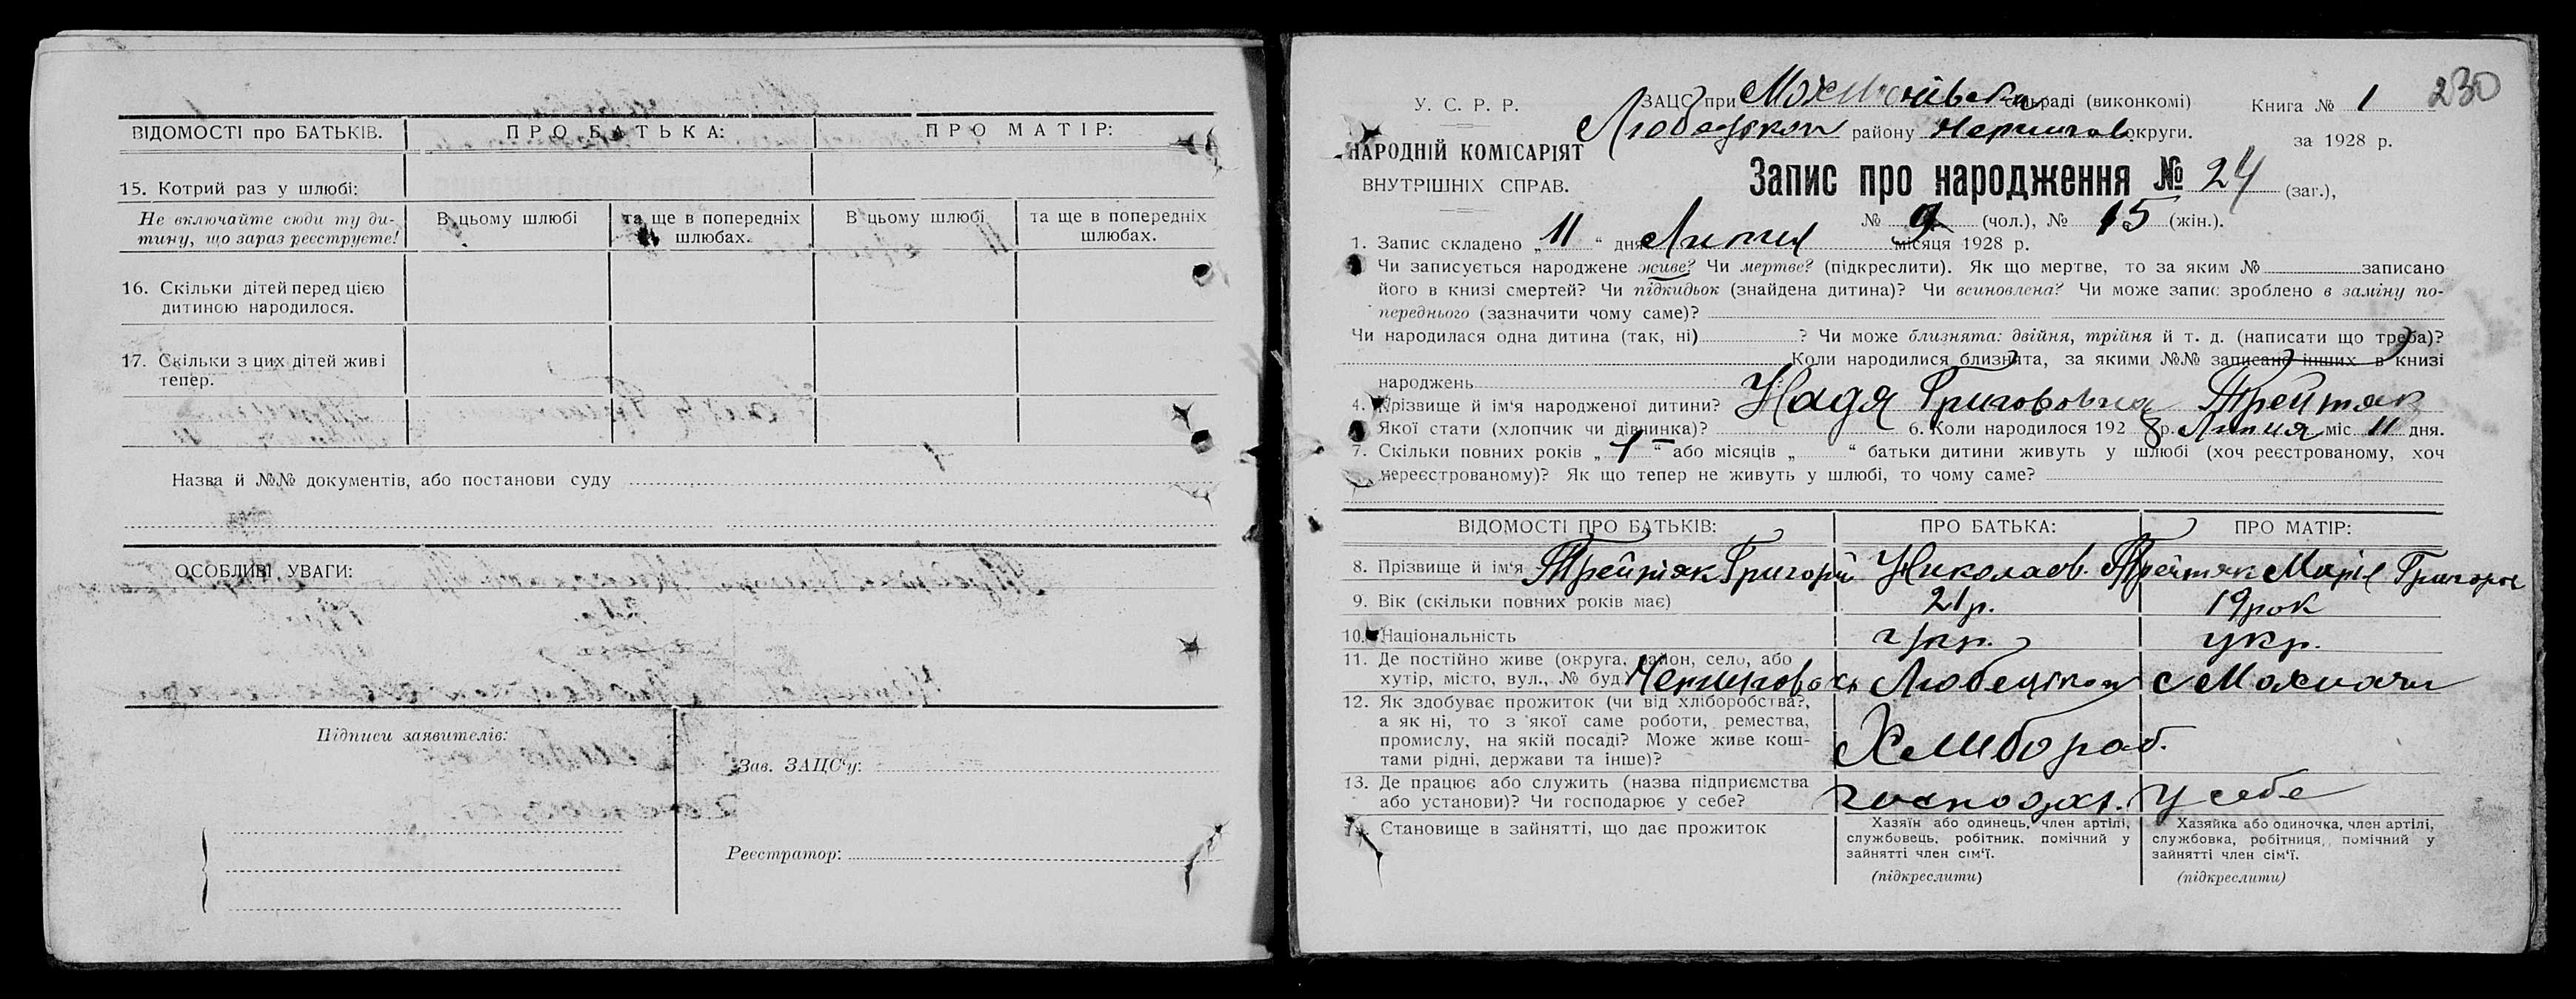 ВІДОМОСТІ про БАТЬКІВ. ПРО БАТЬКА: ПРО МАТІР:
15. Котрий раз у шлюбі:
Не включайте сюди ту ди-
тину, що зараз реєструєте!
В цьому шлюбі та ще в попередніх шлюбах. В цьому шлюбі та ще в попередніх шлюбах.
16. Скільки дітей перед цією
дитиною народилося.
17. Скільки з цих дітей живі
тепер.
Назва й №№ документів, або постанови суду
ОСОБЛИВІ УВАГИ:
Підписи заявителів:
Зав. ЗАЦС'у:
Реєстратор:
230
У. С. Р. Р. ЗАЦС при сільраді (виконкомі) Книга № 1
району Чернигов. округи. за 1928 р.
НАРОДНІЙ КОМІСАРІЯТ
ВНУТРІШНІХ СПРАВ.
Запис про народження № 24 (заг.),
№ 9 (чол.), № 15 (жін.).
1. Запис складено „11“ дня Липня місяця 1928 р.
Чи записується народжене живе? Чи мертве? (підкреслити). Як що мертве, то за яким № записано
його в книзі смертей? Чи підкидьок (знайдена дитина)? Чи всиновлена? Чи може запис зроблено в заміну по-
переднього (зазначити чому саме)?
Чи народилася одна дитина (так, ні) ? Чи може близнята: двійня, трійня й т. д. (написати що треба)?
Коли народилися близнята, за якими №№ записано інших в книзі
народжень
4. Прізвище й ім'я народженої дитини? Надя Григоровна Трейтяк
Якої стати (хлопчик чи дівчинка)? 6. Коли народилося 192 8 р. Липня міс. 11 дня.
7. Скільки повних років „1“ або місяців „ “ батьки дитини живуть у шлюбі (хоч реєстрованому, хоч
нереєстрованому)? Як що тепер не живуть у шлюбі, то чому саме?
ВІДОМОСТІ ПРО БАТЬКІВ: ПРО БАТЬКА: ПРО МАТІР:
8. Прізвище й ім'я Трейтяк Григорій Николаов. Трейтяк Марія Григоров
9. Вік (скільки повних років має) 21 р. 19 рок
10. Національність укр. укр.
11. Де постійно живе (округа, район, село, або
хутір, місто, вул., № буд. с Мохначи
12. Як здобуває прожиток (чи від хліборобства?,
а як ні, то з якої саме роботи, ремества,
промислу, на якій посаді? Може живе кош-
тами рідні, держави та інше)?
Хлибороб.
13. Де працює або служить (назва підприємства
або установи)? Чи господарює у себе? господар. у себе
14. Становище в зайнятті, що дає прожиток
Хазяїн або одинець, член артілі,
службовець, робітник, помічний у
зайнятті член сім'ї.
(підкреслити)
Хазяйка або одиночка, член артілі,
службовка, робітниця, помічний у
зайнятті член сім'ї.
(підкреслити)